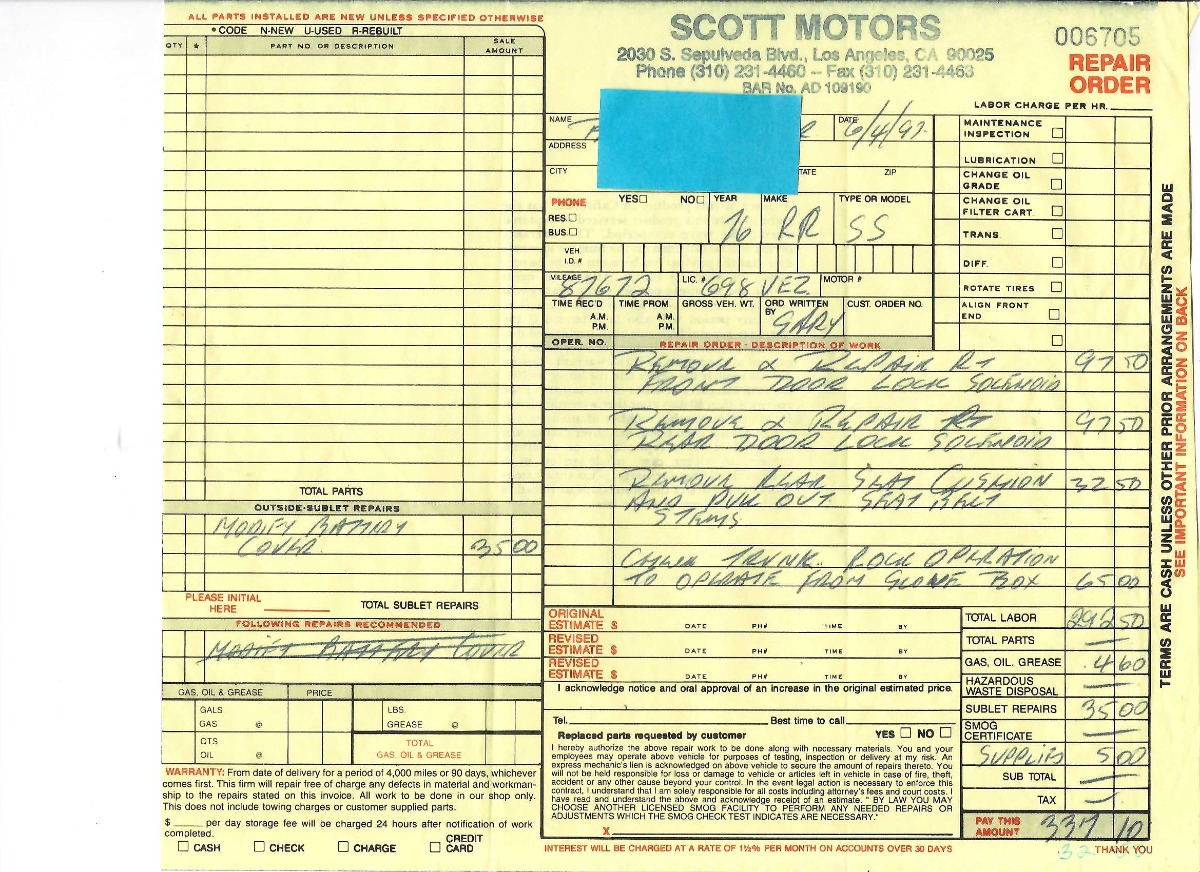 ALL PARTS INSTALLED ARE NEW UNLESS SPECIFIED OTHERWISE
* CODE N-NEW U-USED R-REBUILT
QTY * PART NO. OR DESCRIPTION SALE AMOUNT
TOTAL PARTS
OUTSIDE-SUBLET REPAIRS
MODIFY BATTERY
COVER 35 00
PLEASE INITIAL
HERE TOTAL SUBLET REPAIRS
FOLLOWING REPAIRS RECOMMENDED
MODIFY BATTERY COVER
GAS, OIL & GREASE PRICE
GALS. LBS.
GAS @ GREASE @
QTS. TOTAL
OIL @ GAS, OIL & GREASE
WARRANTY: From date of delivery for a period of 4,000 miles or 90 days, whichever
comes first. This firm will repair free of charge any defects in material and workman-
ship to the repairs stated on this invoice. All work to be done in our shop only.
This does not include towing charges or customer supplied parts.
$ ____ per day storage fee will be charged 24 hours after notification of work
completed.
CASH CHECK CHARGE CREDIT CARD
SCOTT MOTORS
2030 S. Sepulveda Blvd., Los Angeles, CA 90025
Phone (310) 231-4460 -- Fax (310) 231-4463
BAR No. AD 109190
006705
REPAIR
ORDER
LABOR CHARGE PER HR.
NAME DATE 6/4/97
ADDRESS
CITY STATE ZIP
PHONE YES NO YEAR MAKE TYPE OR MODEL
RES.
BUS. 76 RR SS
VEH.
I.D.#
MILEAGE 87672 LIC. # 698 VEZ MOTOR#
TIME REC'D TIME PROM. GROSS VEH. WT. ORD. WRITTEN BY CUST. ORDER NO.
A.M. A.M. GARY
P.M. P.M.
MAINTENANCE INSPECTION
LUBRICATION
CHANGE OIL GRADE
CHANGE OIL FILTER CART.
TRANS.
DIFF.
ROTATE TIRES
ALIGN FRONT END
OPER. NO. REPAIR ORDER - DESCRIPTION OF WORK
REMOVE & REPAIR RT 97 50
FRONT DOOR LOCK SOLENOID
REMOVE & REPAIR RT 97 50
REAR DOOR LOCK SOLENOID
REMOVE REAR SEAT CUSHION 32 50
AND PULL OUT SEAT BELT
STEMS
CHECK TRUNK LOCK OPERATION
TO OPERATE FROM GLOVE BOX 65 00
ORIGINAL
ESTIMATE $ DATE PH# TIME BY
REVISED
ESTIMATE $ DATE PH# TIME BY
REVISED
ESTIMATE $ DATE PH# TIME BY
I acknowledge notice and oral approval of an increase in the original estimated price.
Tel. Best time to call
Replaced parts requested by customer YES NO
I hereby authorize the above repair work to be done along with necessary materials. You and your
employees may operate above vehicle for purposes of testing, inspection or delivery at my risk. An
express mechanic's lien is acknowledged on above vehicle to secure the amount of repairs thereto. You
will not be held responsible for loss or damage to vehicle or articles left in vehicle in case of fire, theft,
accident or any other cause beyond your control. In the event legal action is necessary to enforce this
contract, I understand that I am solely responsible for all costs including attorney's fees and court costs. I
have read and understand the above and acknowledge receipt of an estimate. " BY LAW YOU MAY
CHOOSE ANOTHER LICENSED SMOG FACILITY TO PERFORM ANY NEEDED REPAIRS OR
ADJUSTMENTS WHICH THE SMOG CHECK TEST INDICATES ARE NECESSARY."
X
INTEREST WILL BE CHARGED AT A RATE OF 1½% PER MONTH ON ACCOUNTS OVER 30 DAYS
TOTAL LABOR 292 50
TOTAL PARTS —
GAS, OIL, GREASE 4 60
HAZARDOUS WASTE DISPOSAL —
SUBLET REPAIRS 35 00
SMOG CERTIFICATE —
SUPPLIES 5 00
SUB TOTAL —
TAX —
PAY THIS AMOUNT 337 10
THANK YOU
TERMS ARE CASH UNLESS OTHER PRIOR ARRANGEMENTS ARE MADE
SEE IMPORTANT INFORMATION ON BACK